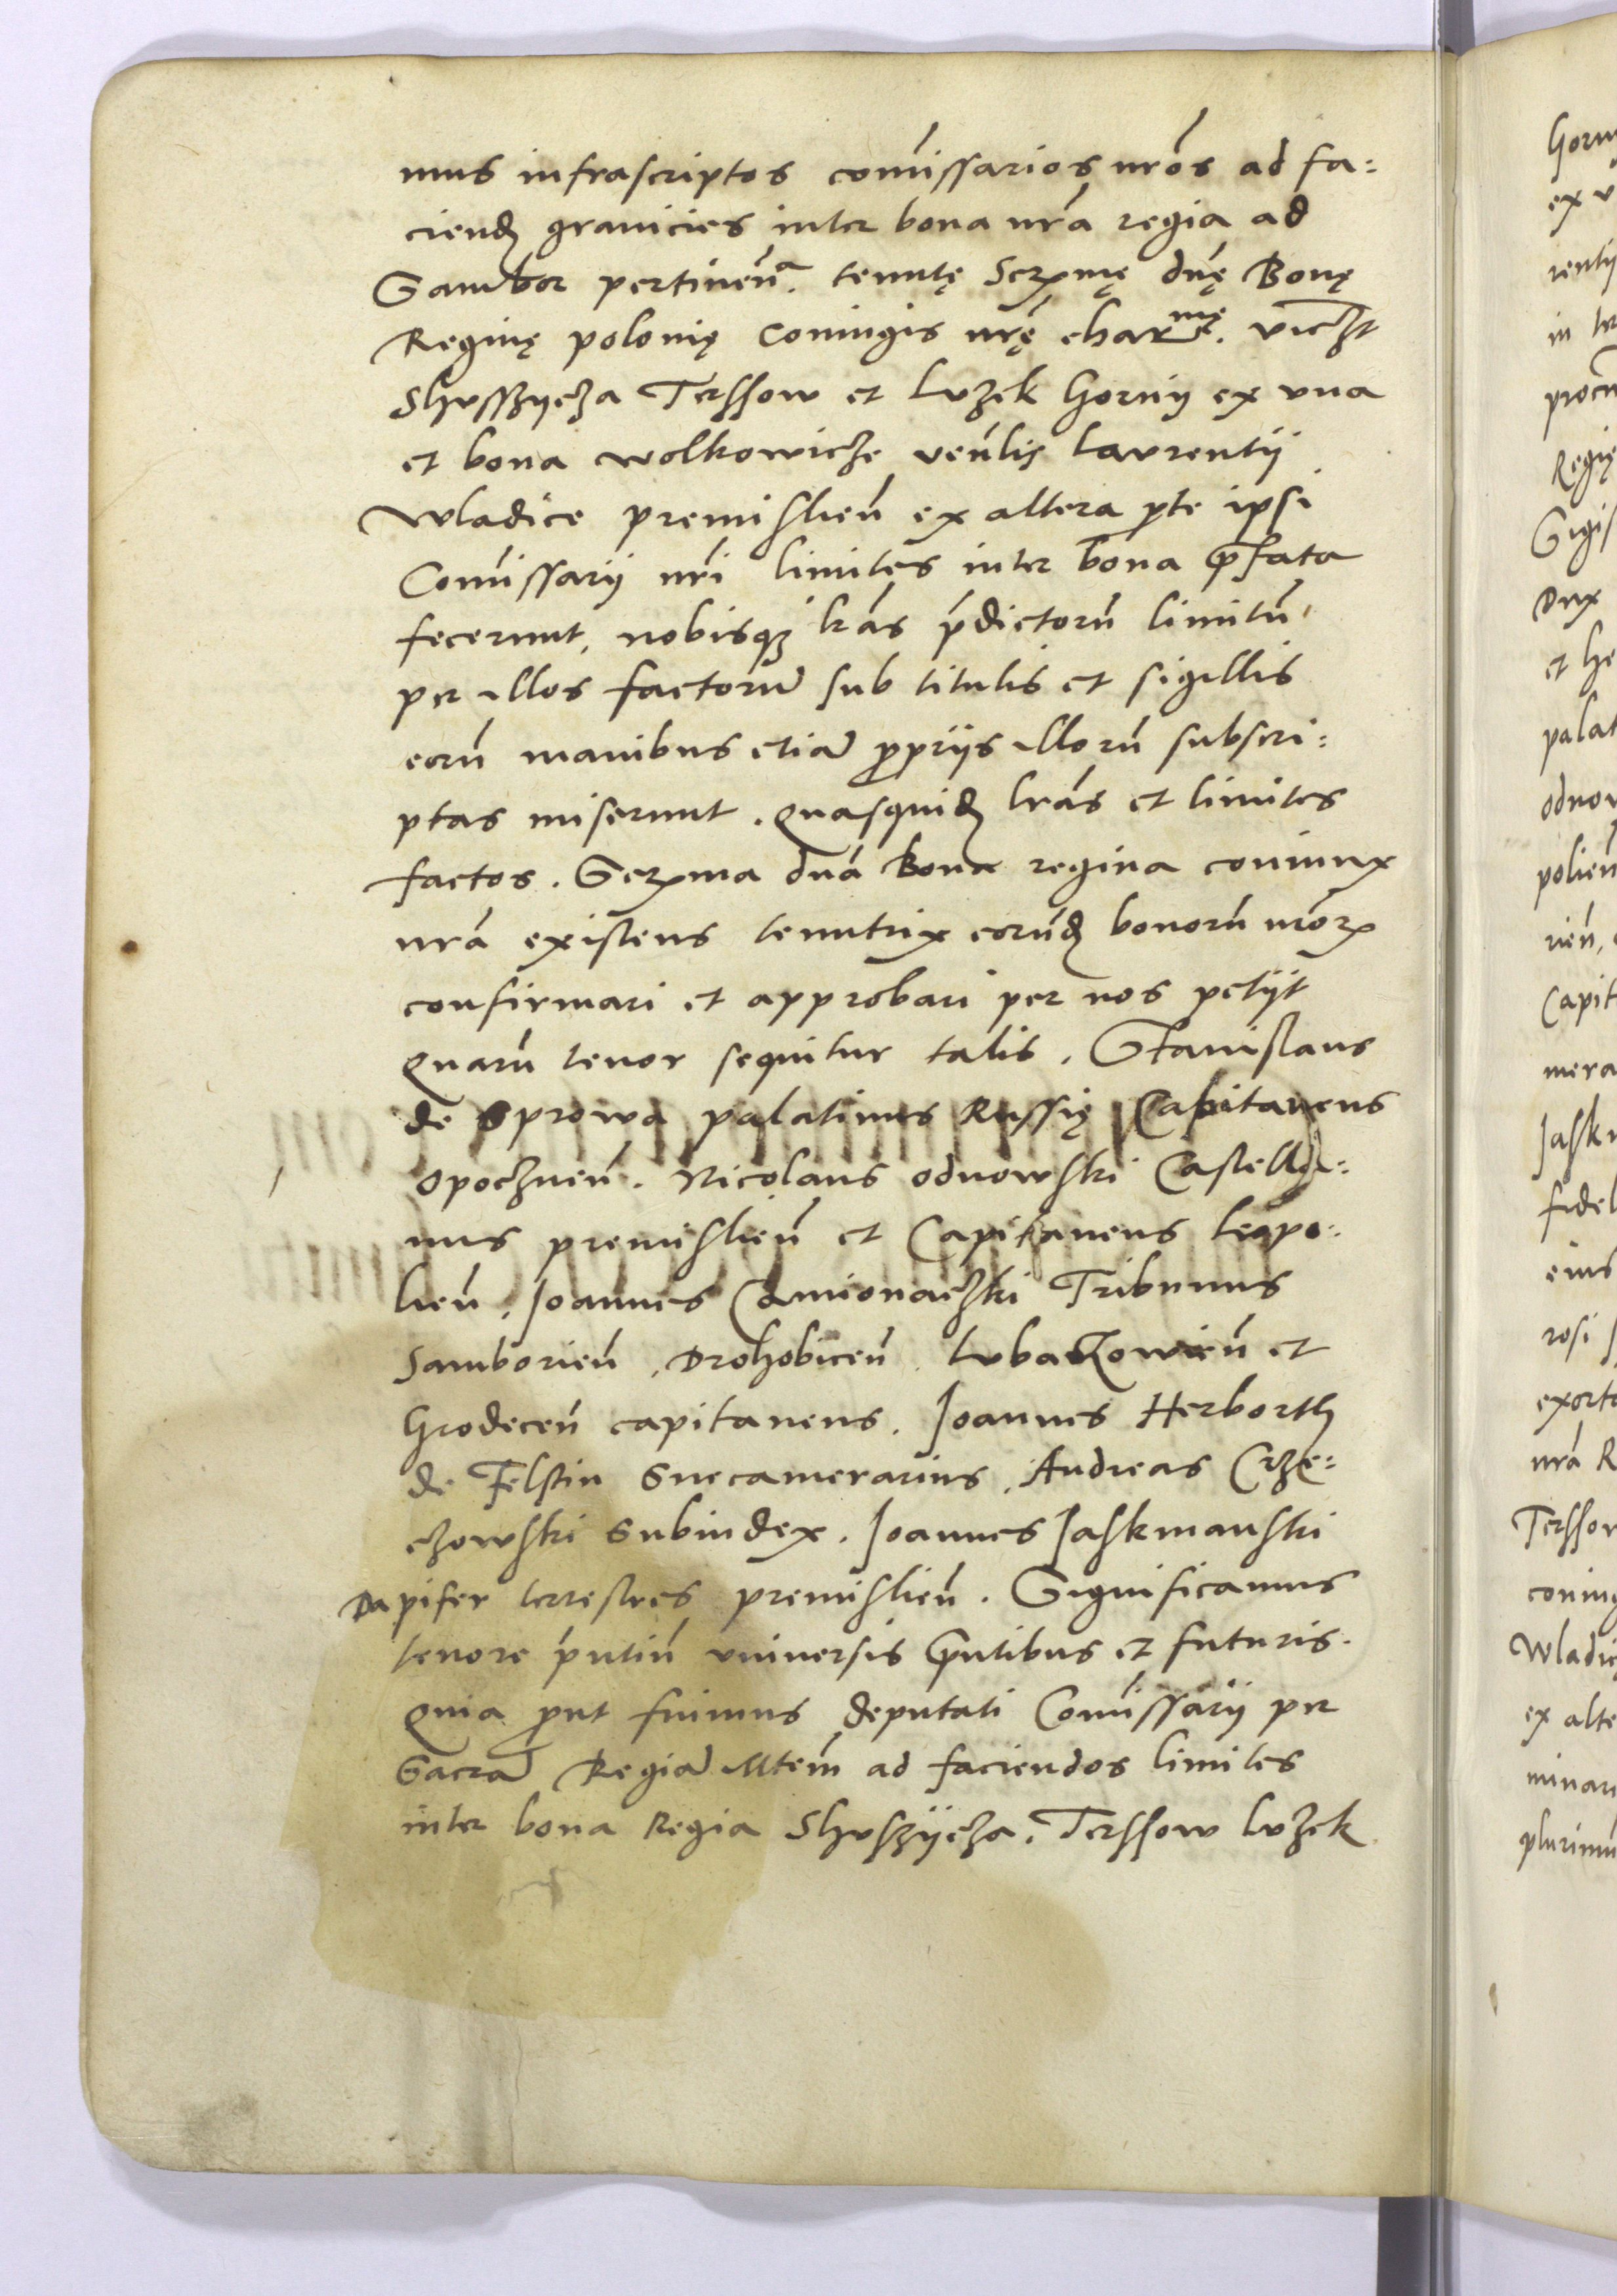 mus infrascriptos com̄issarios nr̄os ad fa:
ciend̄ granicies inter bona nr̄a regia ad
Sambor pertineñ. tenutę Serꝫmę dn̄ę Bonę
Reginę polonię Coniugis nr̄ę charmę. vicꝫt
Shusszÿcza Terssow et Luzek Gornij ex vna
et bona Wolkowicze ven̄lis Laurentii
Wladice premislień ex altera p̄te ipsi
Com̄issarij nr̄i limites inter bona p̄fata
fecerunt, nobisqꝫ lr̄as p̄dictorū limitū
per illos factorū sub titulis et sigillis
eorū manibus etiā p̄prijs illorū subscri:
ptas miserunt. Quasquid̄ lr̄as et limites
factos. Serꝫma dn̄a Bona regina coniunx
nr̄a existens tenutrix eorūd̄ bonorū nr̄oꝝ
confirmari et approbari per nos petijt
Quarū tenor sequitur talis. Stanislaus
de Sprowa palatinus Russię Capitaneus
Opoczneń. Nicolaus Odnowski Castella:
nus premislień et Capitaneus Leopo:
lień. Joannes Camionaczki Tribunus
Samborień, Drohobiceń, Lubaczowień et
Grodeceń capitaneus. Joannes Herborth
de Felstin Succamerarius, Andreas Crze:
czowski Subiudex. Joannes Jaskmanski
Dapifer terrestres premislień. Significamus
tenore p̄ntiū vniuersis p̄ntibus et futuris.
Quia p̄ut fuimus deputati Com̄issarij per
Sacrā Regiā Mtem̄ ad faciendos limites
inter bona Regia Shuszÿcza. Terssow Luzek